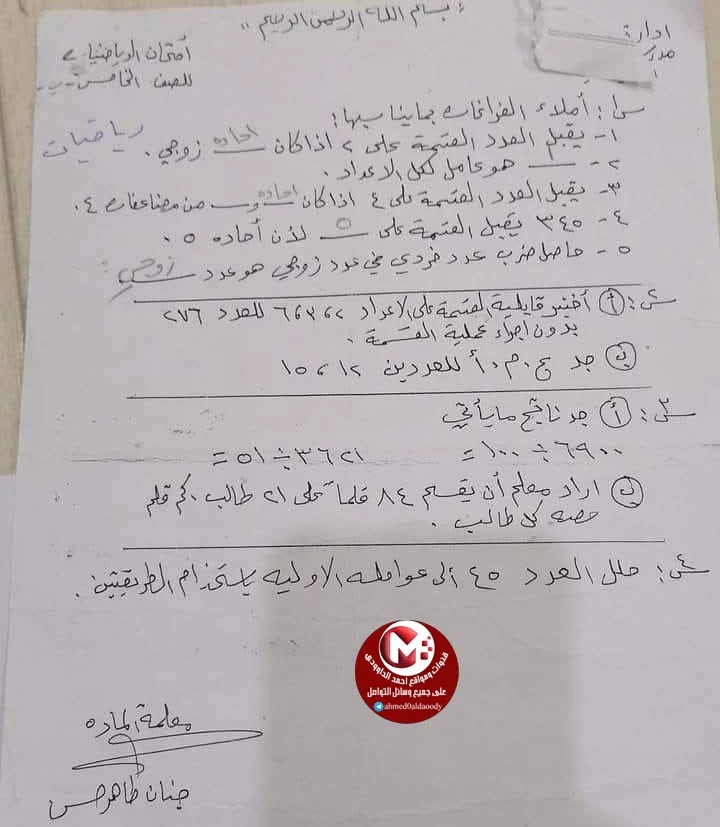 بسم الله الرحمن الرحيم
ادارة
أمتحان الرياضيات
للصف الخامس
رياضيات
س١: أملاء الفراغات بما يناسبها:
١- يقبل العدد القسمة على ٢ اذا كان احاده زوجي.
٢- ــــ هو عامل لكل الاعداد.
٣- يقبل العدد القسمة على ٤ اذا كان احاده و ــــ من مضاعفات ٤.
٤- ٣٤٥ يقبل القسمة على ٥ لأن أحاده ٥.
٥- حاصل ضرب عدد فردي في عدد زوجي هو عدد زوجي.
س٢: أ) أختبر قابلية القسمة على الاعداد ٢، ٣، ٦ للعدد ٢٧٦
بدون اجراء عملية القسمة.
ب) جد ع.م.أ للعددين ١٢، ١٥
س٣: أ) جد ناتج ما يأتي
٦٩٠٠ ÷ ١٠٠ = ٣٦٢١ ÷ ٥١ =
ب) اراد معلم أن يقسم ٨٤ قلماً على ٢١ طالب. كم قلم
حصة كل طالب.
س٤: حلل العدد ٤٥ ألى عوامله الاوليه بإستخدام الطريقتين.
قنوات ومواقع احمد الداوودي
على جميع وسائل التواصل
ahmed0aldaoody
معلمة الماده
جنان طاهر